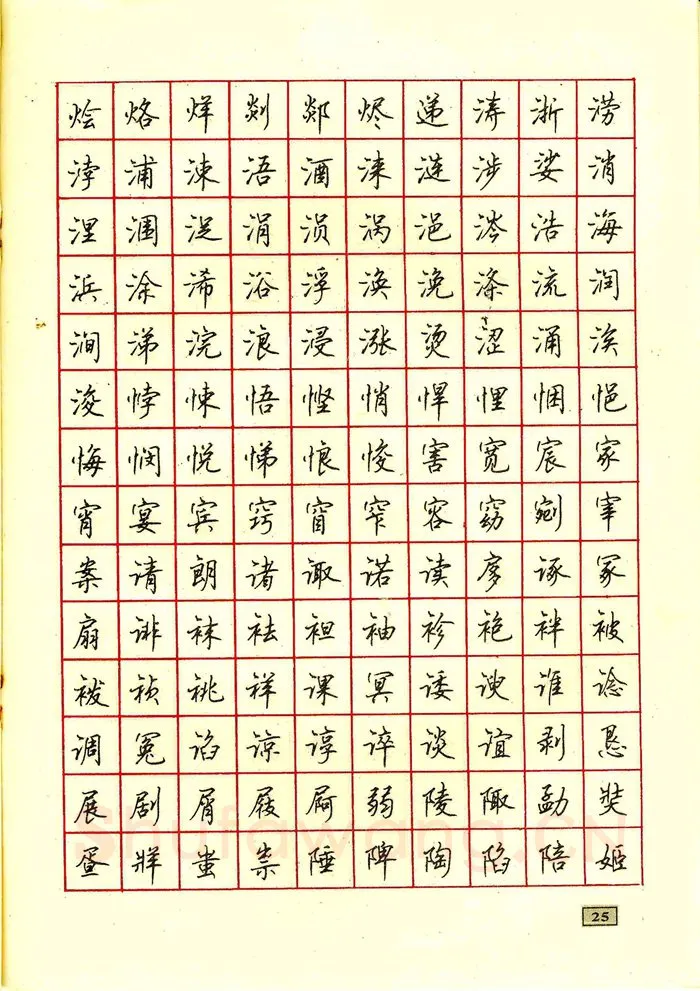 烩烙烊剡郯烬递涛浙涝
浡浦涑浯酒涞涟涉娑消
涅涠浞涓涢涡浥涔浩海
浜涂浠浴浮涣浼涤流润
涧涕浣浪浸涨烫涩涌涘
浚悖悚悟悭悄悍悝悃悒
悔悯悦悌悢悛害宽宸家
宵宴宾窍窅窄容窈剜宰
案请朗诸诹诺读扅诼冢
扇诽袜袪袒袖袗袍袢被
袯祯祧祥课冥诿谀谁谂
调冤谄谅谆谇谈谊剥恳
展剧屑屐屙弱陵陬勐奘
疍牂蚩祟陲陴陶陷陪姬
Shufawang.CN
25